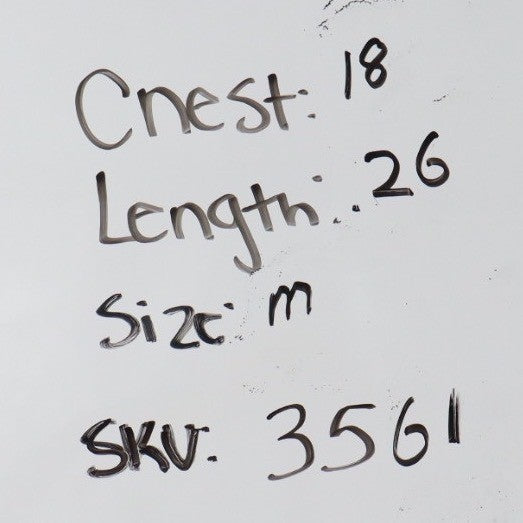 Chest: 18
Length: 26
Size: m
SKU: 3561